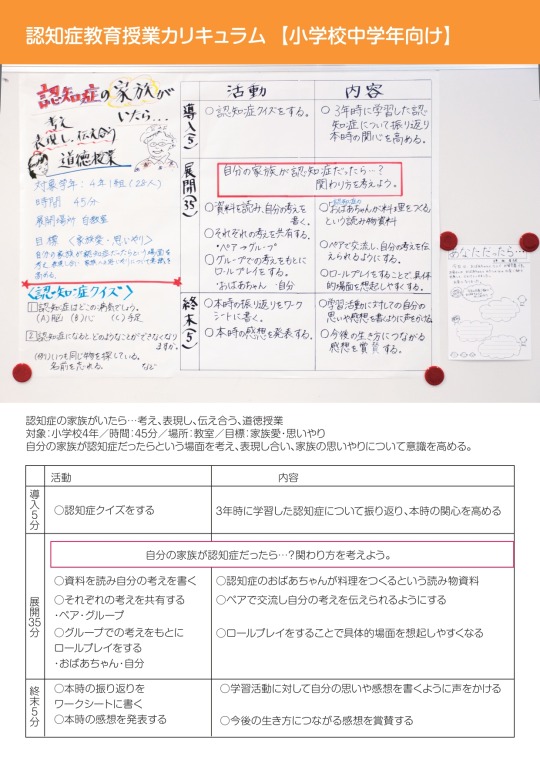 認知症教育授業カリキュラム 【小学校中学年向け】
認知症の家族が
いたら…
考え
表現し、伝え合う
道徳授業
対象学年：4年1組(28人)
時間 45分
展開場所 自教室
目標 〈家族愛・思いやり〉
自分の家族が認知症だったらという場面を
〈認知症クイズ〉
1 認知症はどこの病気でしょう。
(A)脳 (B)心 (C)手足
2 認知症になるとどのようなことができなくなり
ますか。
(例)いつも同じ物を探している。
名前を忘れる。 など
活動
内容
導入(5)
○認知症クイズをする。
○3年時に学習した認
知症について振り返り
本時の関心を高める。
展開(35)
自分の家族が認知症だったら…?
関わり方を考えよう。
○資料を読み、自分の考えを
書く。
○それぞれの考えを共有する。
・ペア→グループ
○グループでの考えをもとに
ロールプレイをする。
・おばあちゃん ・自分
○認知症の
おばあちゃんが料理をつくる
という読み物資料
○ペアで交流し、自分の考えを伝え
られるようにする。
○ロールプレイをすることで、具体
的場面を想起しやすくする。
終末(5)
○本時の振り返りをワーク
シートに書く。
○本時の感想を発表する。
○学習活動に対しての自分の
思いや感想を書くように声をかける
○今後の生き方につながる
感想を賞賛する。
あなただったら…
認知症の家族がいたら…考え、表現し、伝え合う、道徳授業
対象：小学校4年／時間：45分／場所：教室／目標：家族愛・思いやり
自分の家族が認知症だったらという場面を考え、表現し合い、家族の思いやりについて意識を高める。
活動
内容
導入5分
○認知症クイズをする
3年時に学習した認知症について振り返り、本時の関心を高める
展開35分
自分の家族が認知症だったら…?関わり方を考えよう。
○資料を読み自分の考えを書く
○認知症のおばあちゃんが料理をつくるという読み物資料
○それぞれの考えを共有する
・ペア・グループ
○ペアで交流し自分の考えを伝えられるようにする
○グループでの考えをもとに
ロールプレイをする
・おばあちゃん・自分
○ロールプレイをすることで具体的場面を想起しやすくなる
終末5分
○本時の振り返りを
ワークシートに書く
○学習活動に対して自分の思いや感想を書くように声をかける
○本時の感想を発表する
○今後の生き方につながる感想を賞賛する